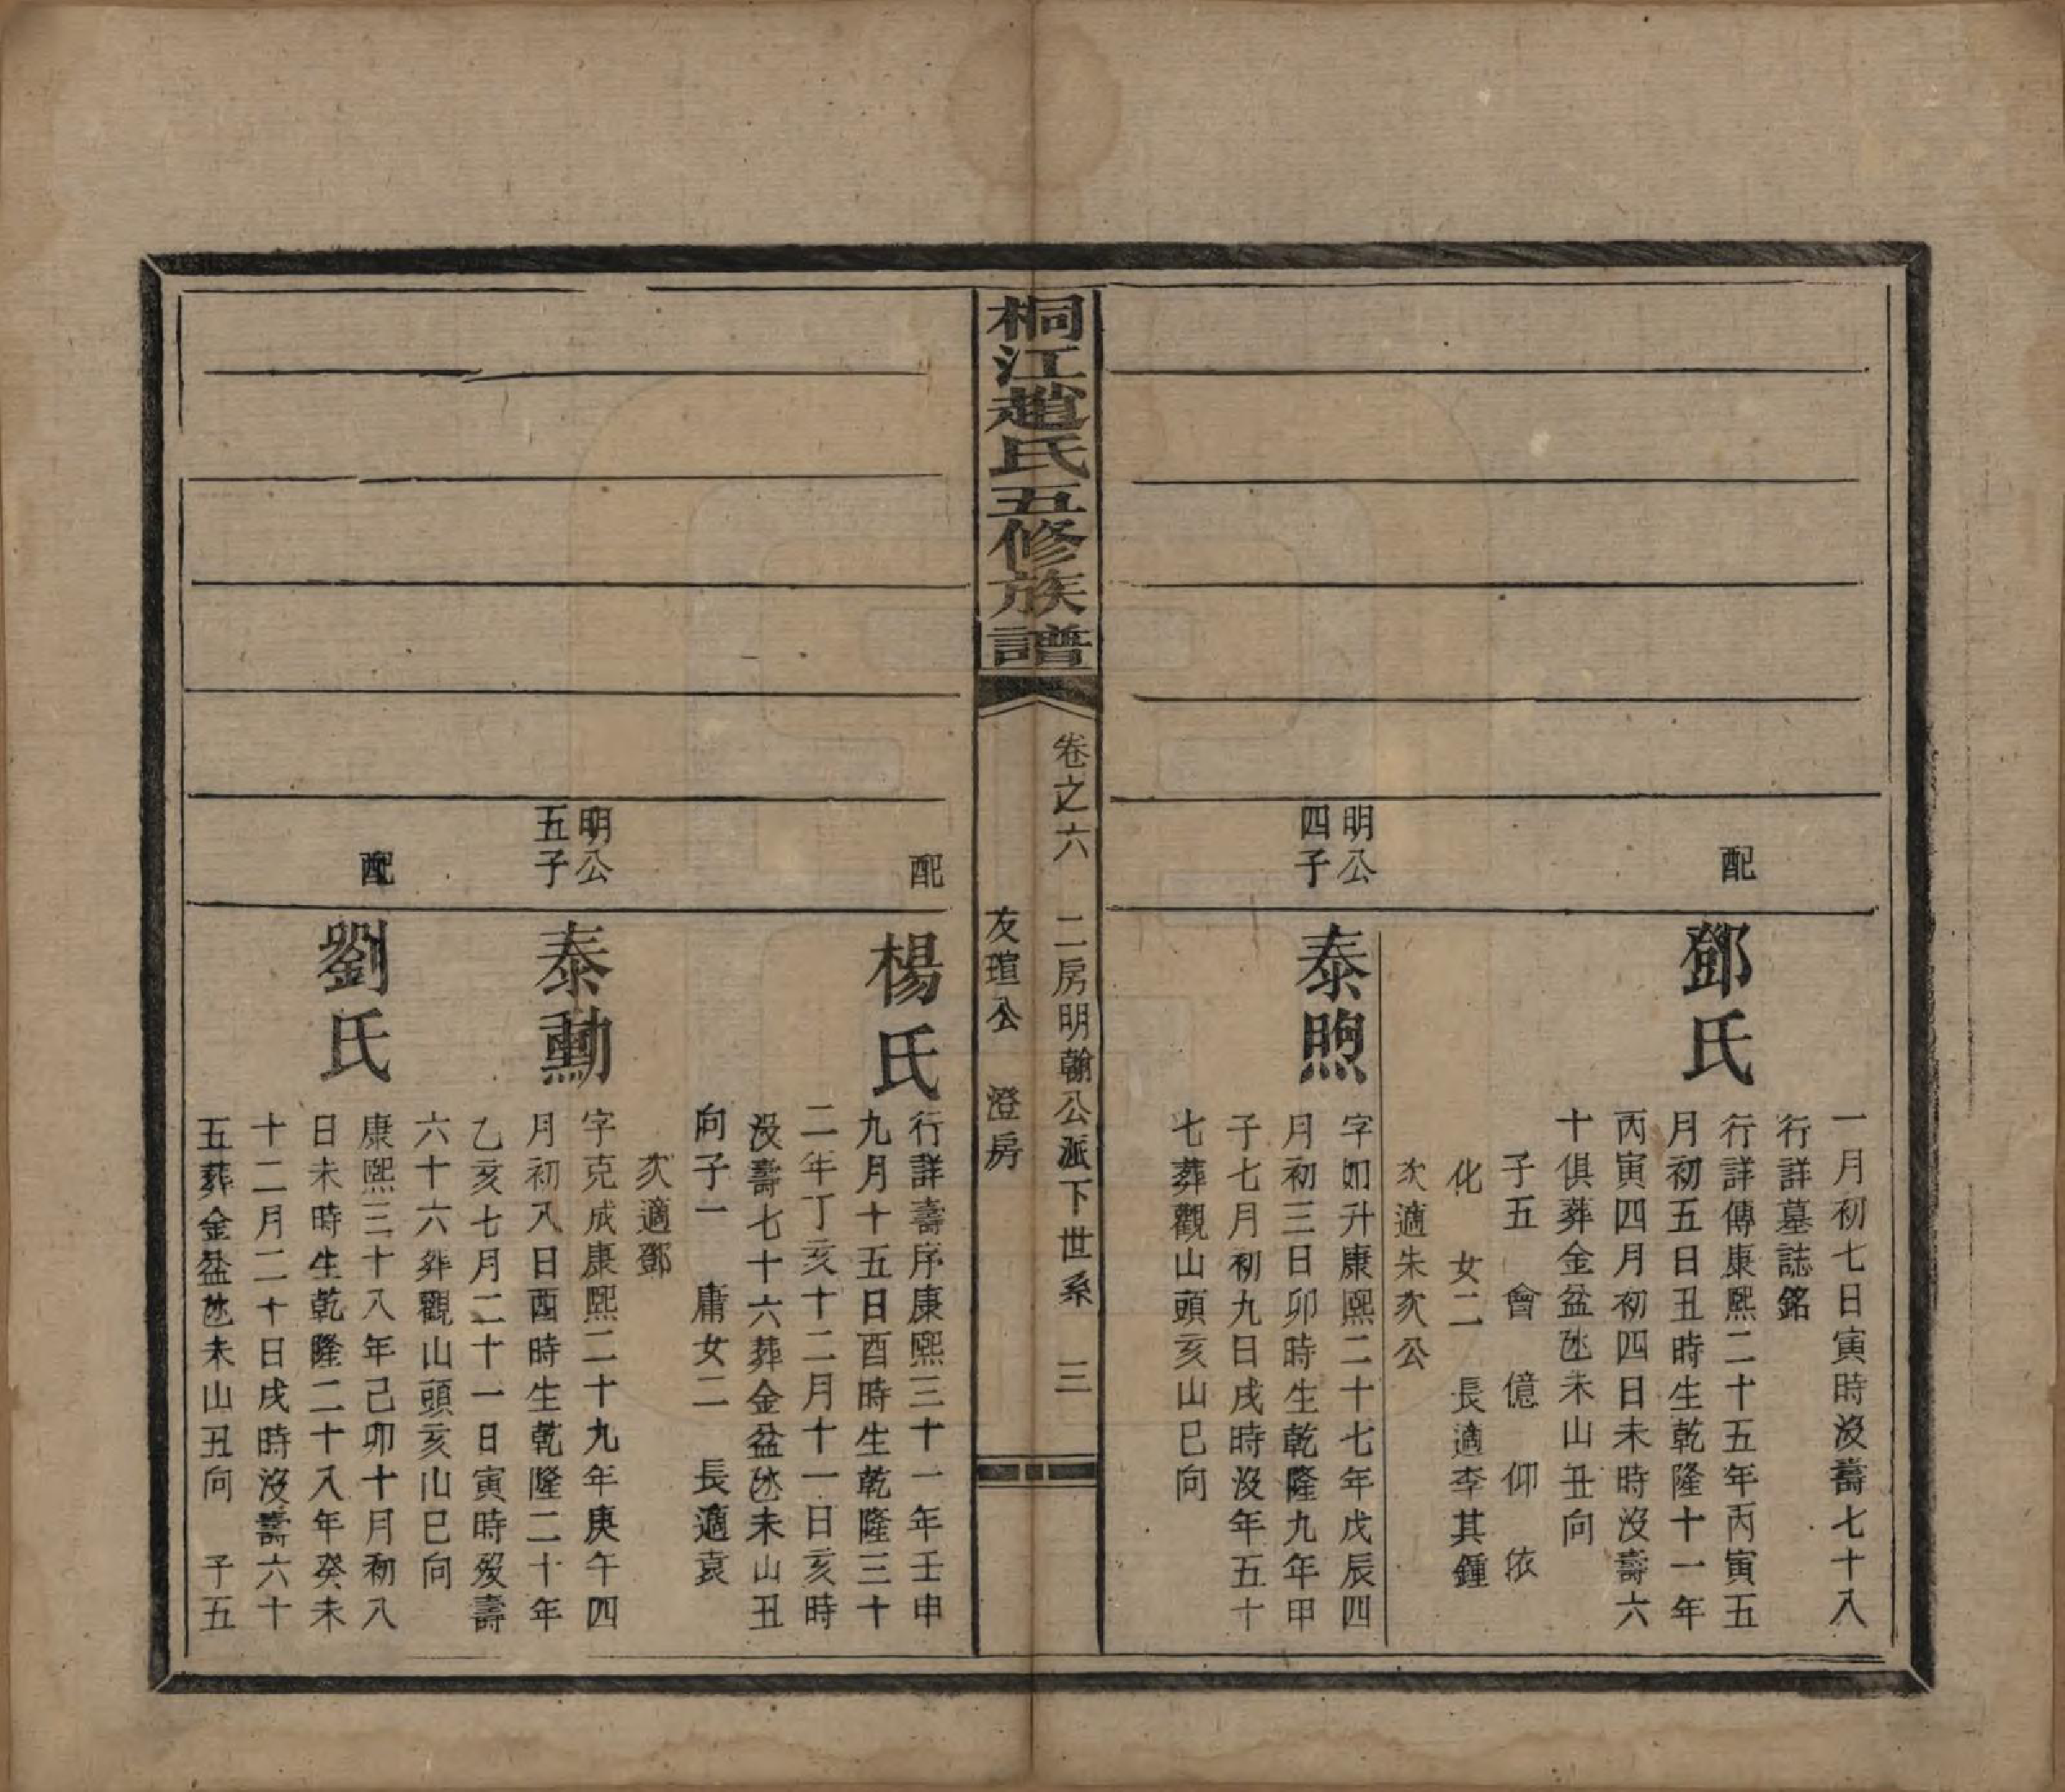 一月初七日寅時没壽七十八
行詳墓誌銘
配
鄧氏
行詳傳康熙二十五年丙寅五
月初五日丑時生乾隆十一年
丙寅四月初四日未時没壽六
十俱葬金盆氹未山丑向
子五 會 億 仰 依
化 女二 長適李其鍾
次適朱次公
明公
四子
泰煦
字如升康熙二十七年戊辰四
月初三日卯時生乾隆九年甲
子七月初九日戌時没年五十
七葬觀山頭亥山巳向
桐江趙氏五修族譜
卷之六 二房明翰公派下世系 三
友瑄公 澄房
配
楊氏
行詳壽序康熙三十一年壬申
九月十五日酉時生乾隆三十
二年丁亥十二月十一日亥時
没壽七十六葬金盆氹未山丑
向子一 庸女二 長適袁
次適鄧
明公
五子
泰勳
字克成康熙二十九年庚午四
月初八日酉時生乾隆二十年
乙亥七月二十一日寅時殁壽
六十六葬觀山頭亥山巳向
配
劉氏
康熙三十八年己卯十月初八
日未時生乾隆二十八年癸未
十二月二十日戌時没壽六十
五葬金盆氹未山丑向 子五